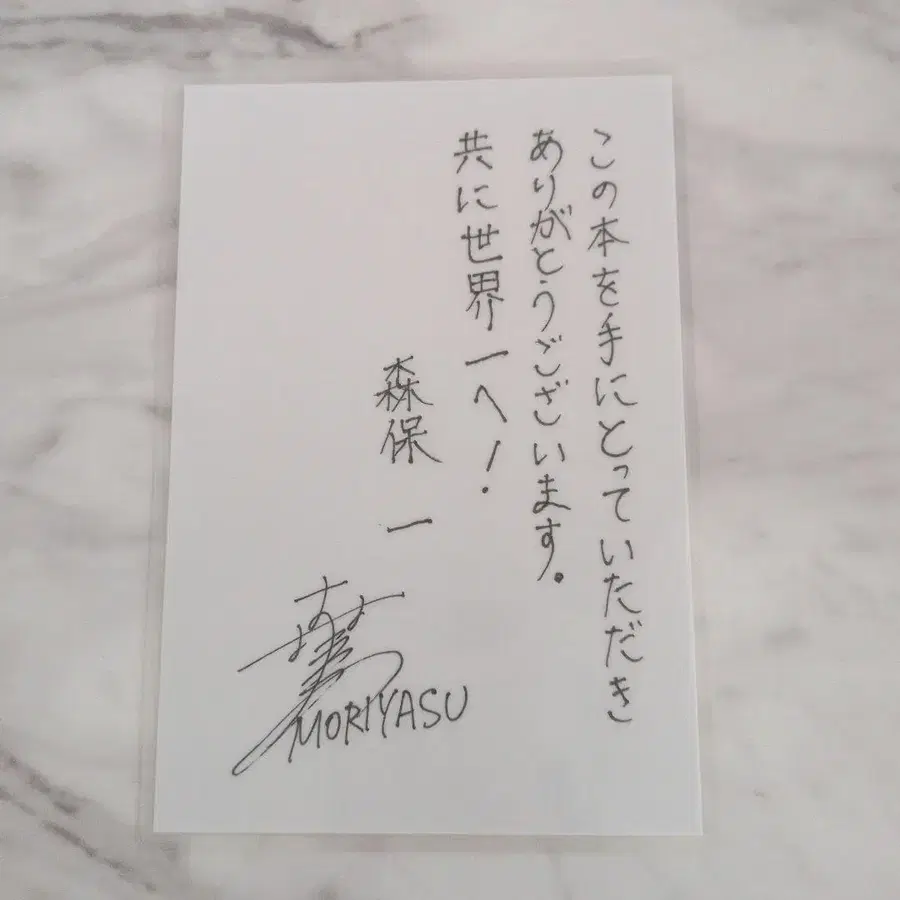 この本を手にとっていただき
ありがとうございます。
共に世界一へ!
森保 一
MORIYASU